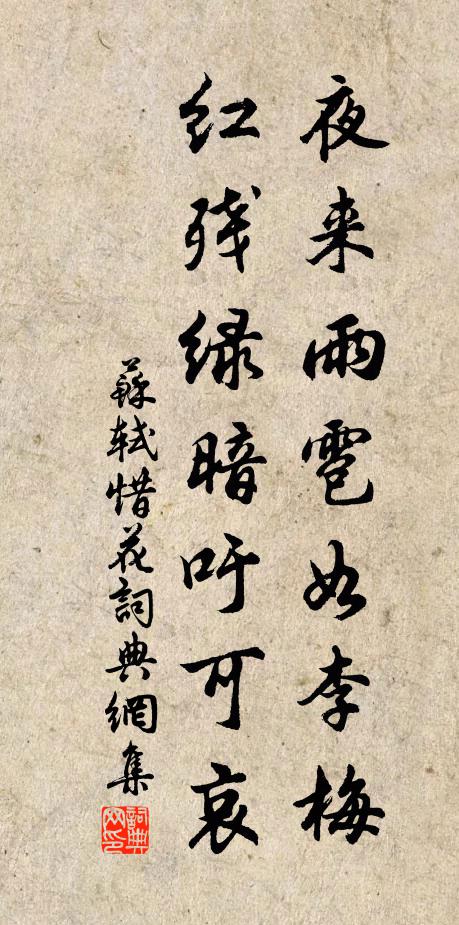 夜来雨雹如李梅
红残绿暗吁可哀
蘇軾惜花詞典網集
詞典網印